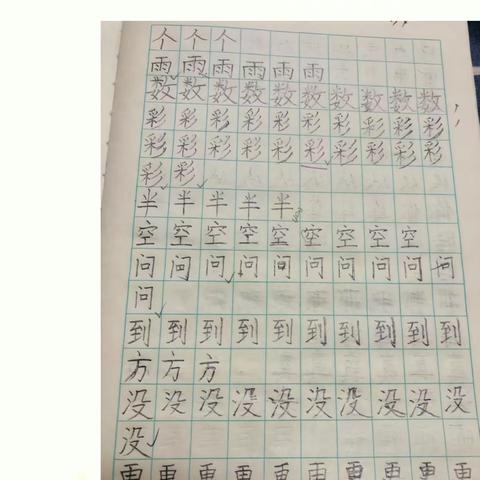 个个个
雨雨雨雨雨雨
数数数数数数数数数
彩彩彩彩彩彩彩彩彩
彩彩彩彩彩彩彩彩彩
彩彩
半半半半半
空空空空空空空空空
问问问问问问问问问问
问
到到到到到到到到到到
方方方
没没没没没没没没没没
没
更更更更更更更更更更